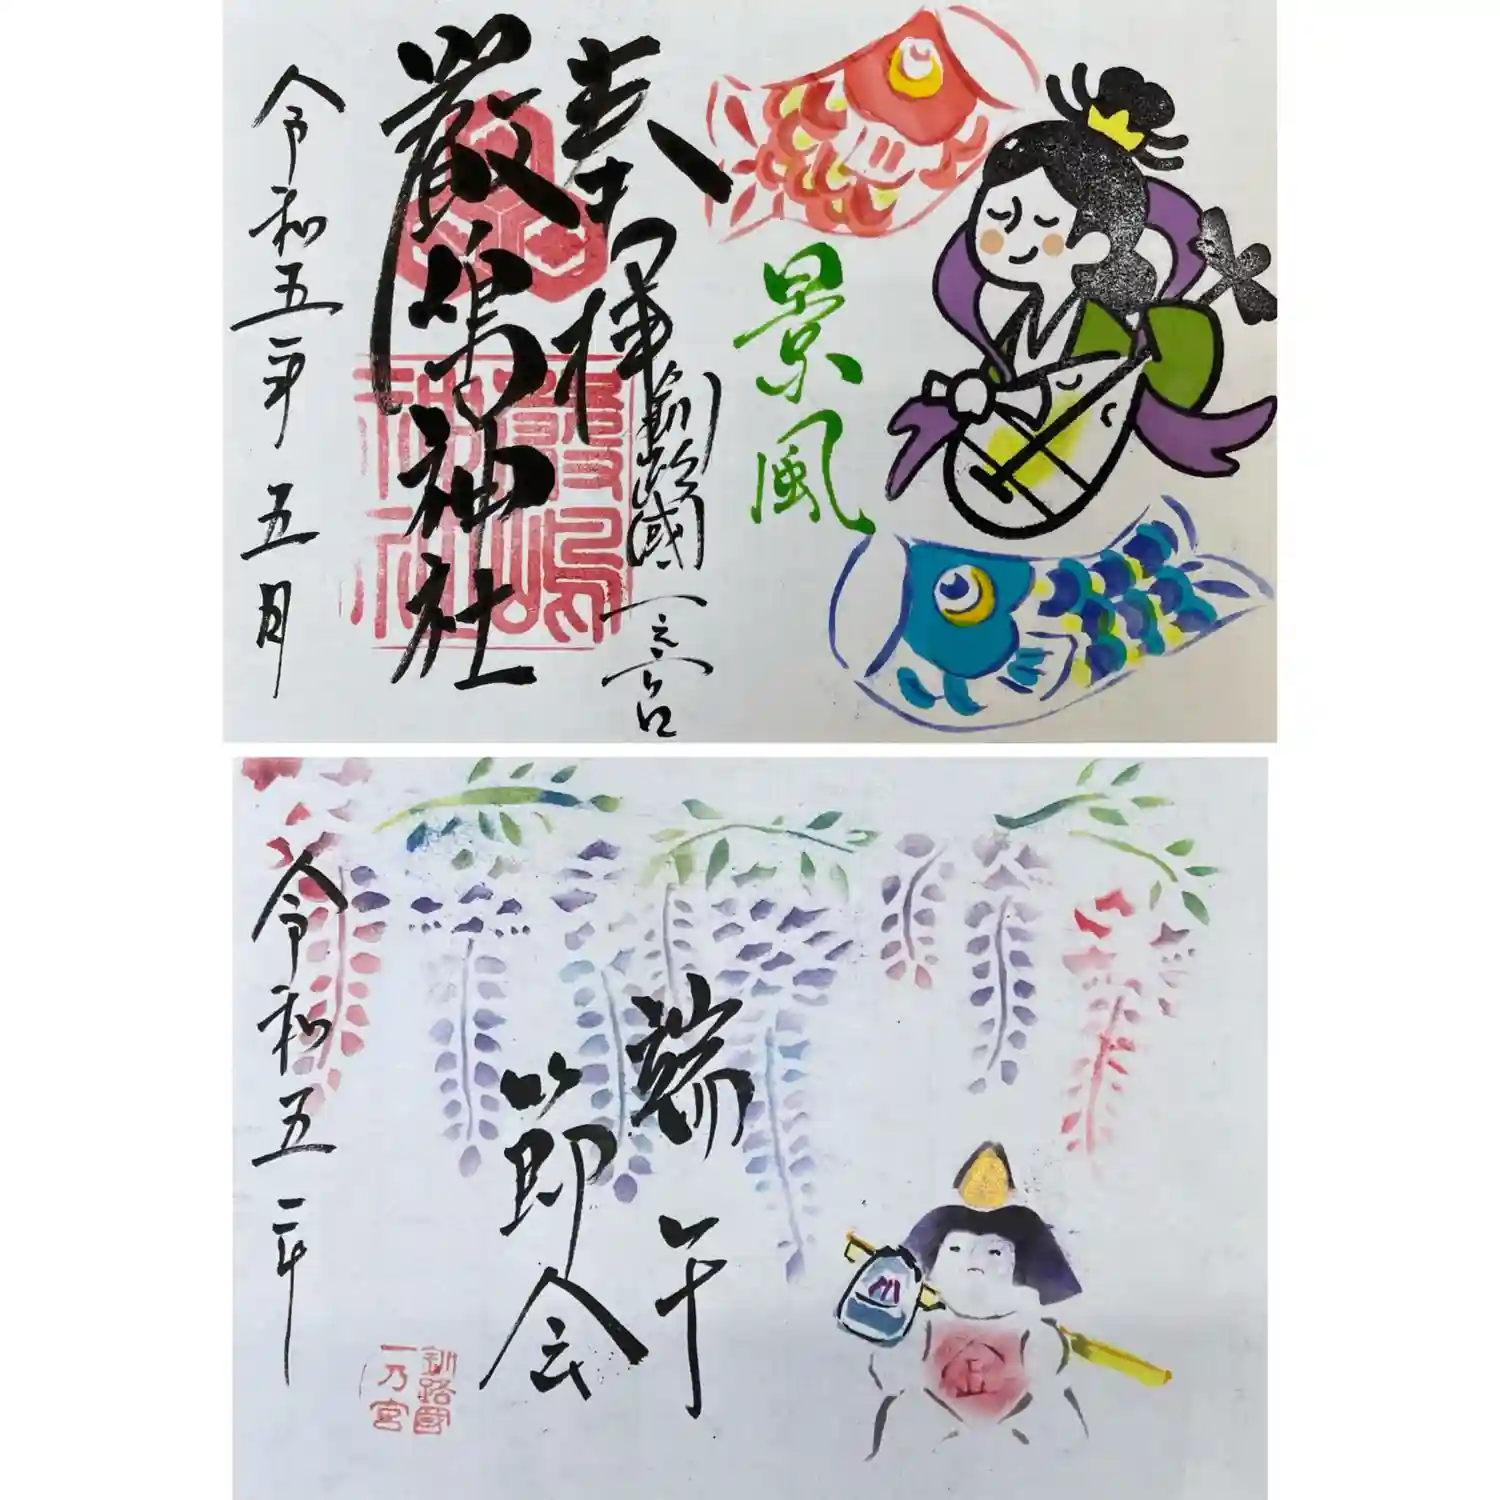 景風
奉拝
釧路國一之宮
厳嶋神社
嚴嶋神社
令和五年 五月
端午
節会
令和五年
釧路國
一乃宮
金